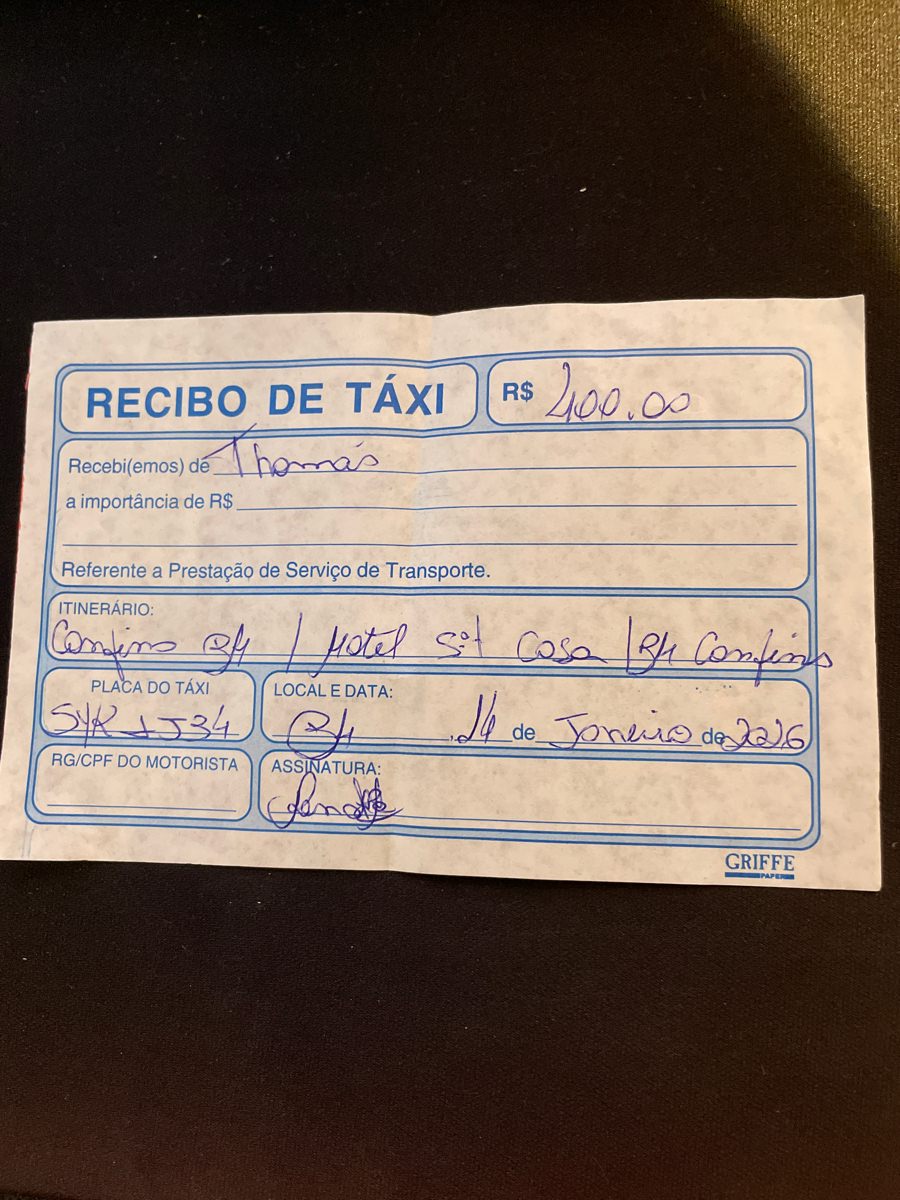 RECIBO DE TÁXI
R$ 400.00
Recebi(emos) de Thomás
a importância de R$
Referente a Prestação de Serviço de Transporte.
ITINERÁRIO:
Confins BH / Hotel Casa / BH Confins
PLACA DO TÁXI
LOCAL E DATA:
BH, 14 de Janeiro de 2026
RG/CPF DO MOTORISTA
ASSINATURA:
GRIFFE
PAPER